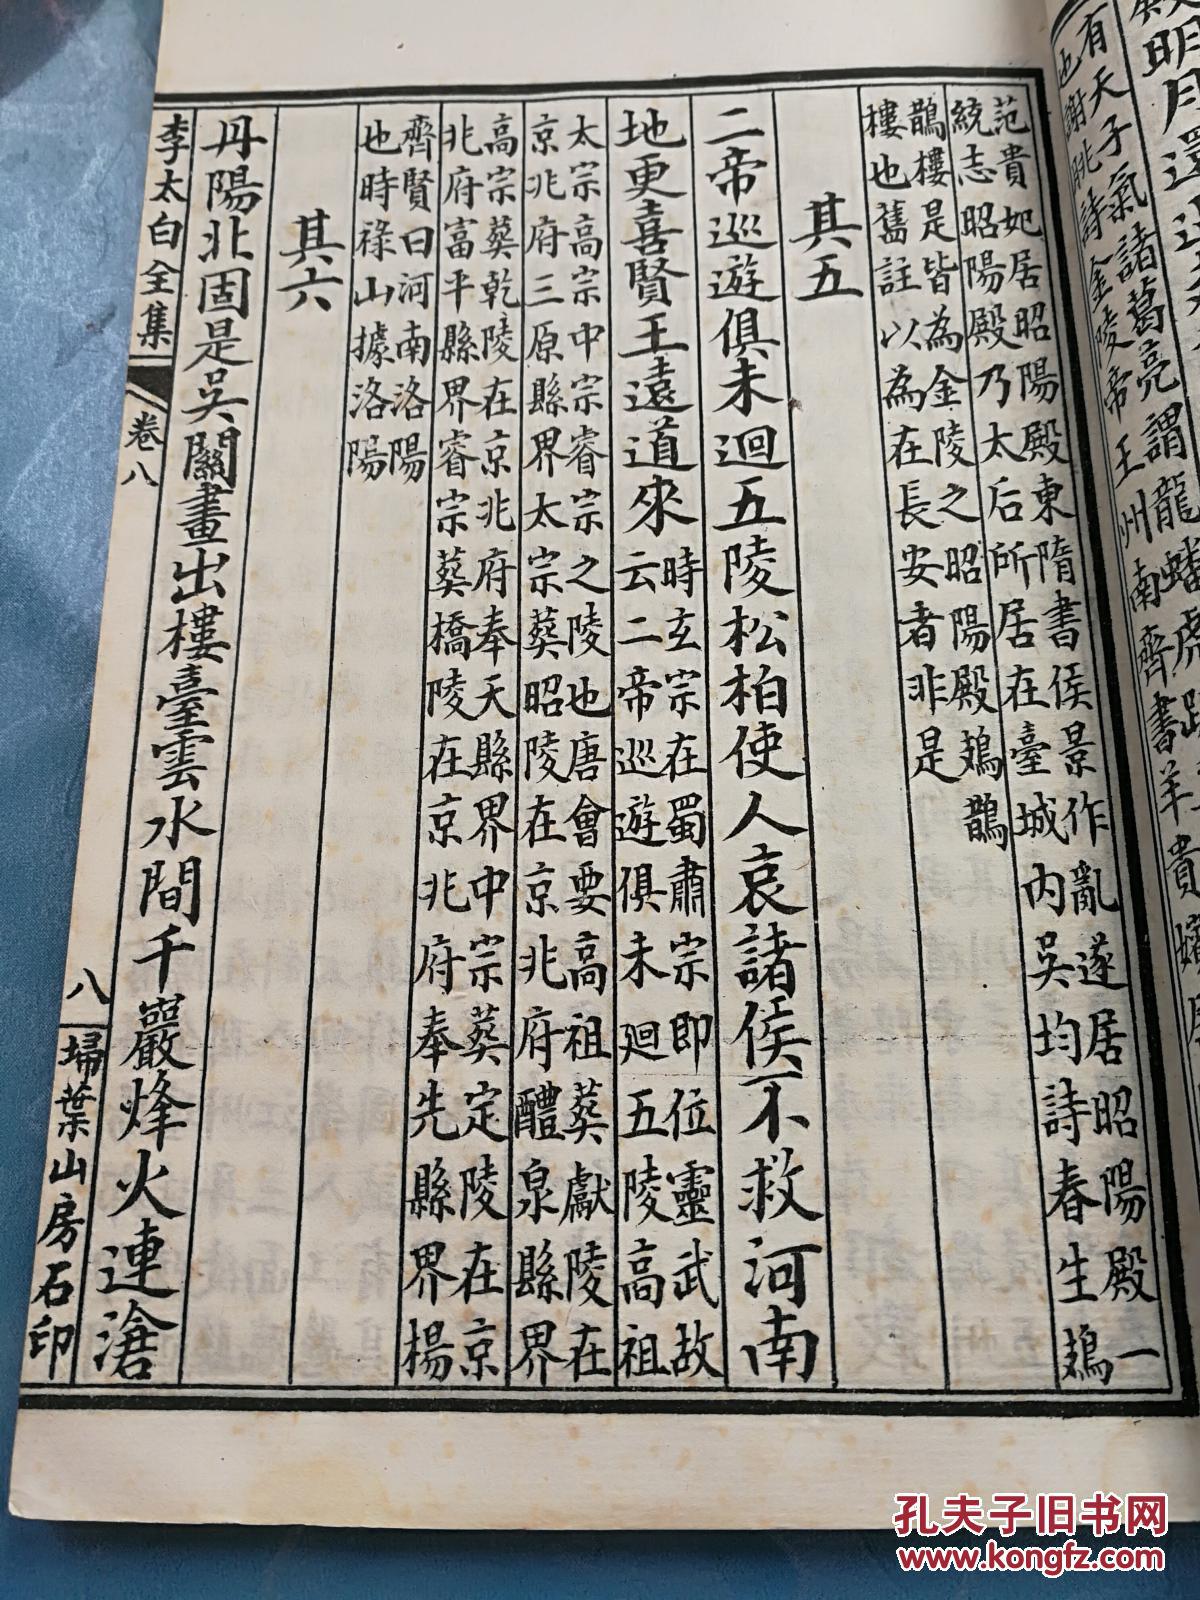 明月還
有天子氣諸葛亮謂龍蟠虎踞
也謝朓詩金陵帝王州南齊書羊貴嬪
范貴妃居昭陽殿東隋書侯景作亂遂居昭陽殿一
統志昭陽殿乃太后所居在臺城內吳均詩春生鳷
鵲樓是皆為金陵之昭陽殿鳷鵲
樓也舊註以為在長安者非是
其五
二帝巡遊俱未迴五陵松柏使人哀諸侯不救河南
地更喜賢王遠道來
時玄宗在蜀肅宗即位靈武故
云二帝巡遊俱未廻五陵高祖
太宗高宗中宗睿宗之陵也唐會要高祖葬獻陵在
京兆府三原縣界太宗葬昭陵在京兆府醴泉縣界
高宗葬乾陵在京兆府奉天縣界中宗葬定陵在京
兆府富平縣界睿宗葬橋陵在京兆府奉先縣界楊
齊賢曰河南洛陽
也時祿山據洛陽
其六
丹陽北固是吳關畫出樓臺雲水間千巖烽火連滄
李太白全集 卷八 八 掃葉山房石印
孔夫子旧书网
www.kongfz.com